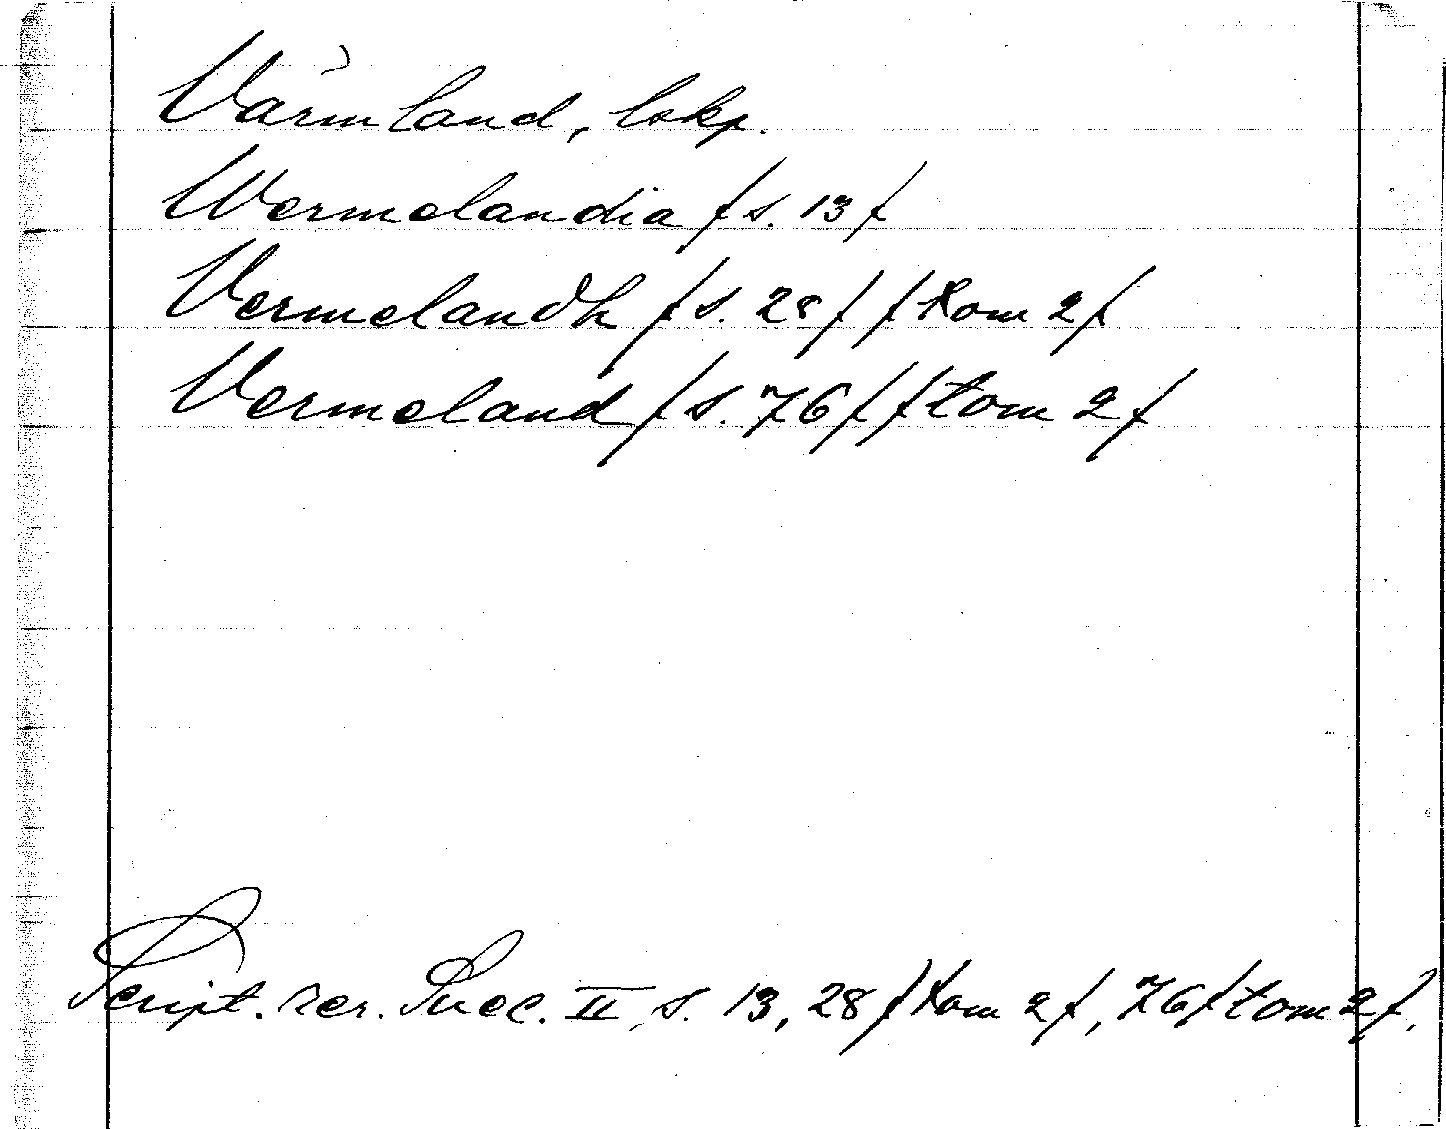 Värmland, lskp.
Wermelandia /s. 13/
Vermelandh /s. 28/ /tom 2/
Vermeland /s. 76/ /tom 2/
Script. rer. Suec. II, s. 13, 28 /tom 2/, 76 /tom 2/.